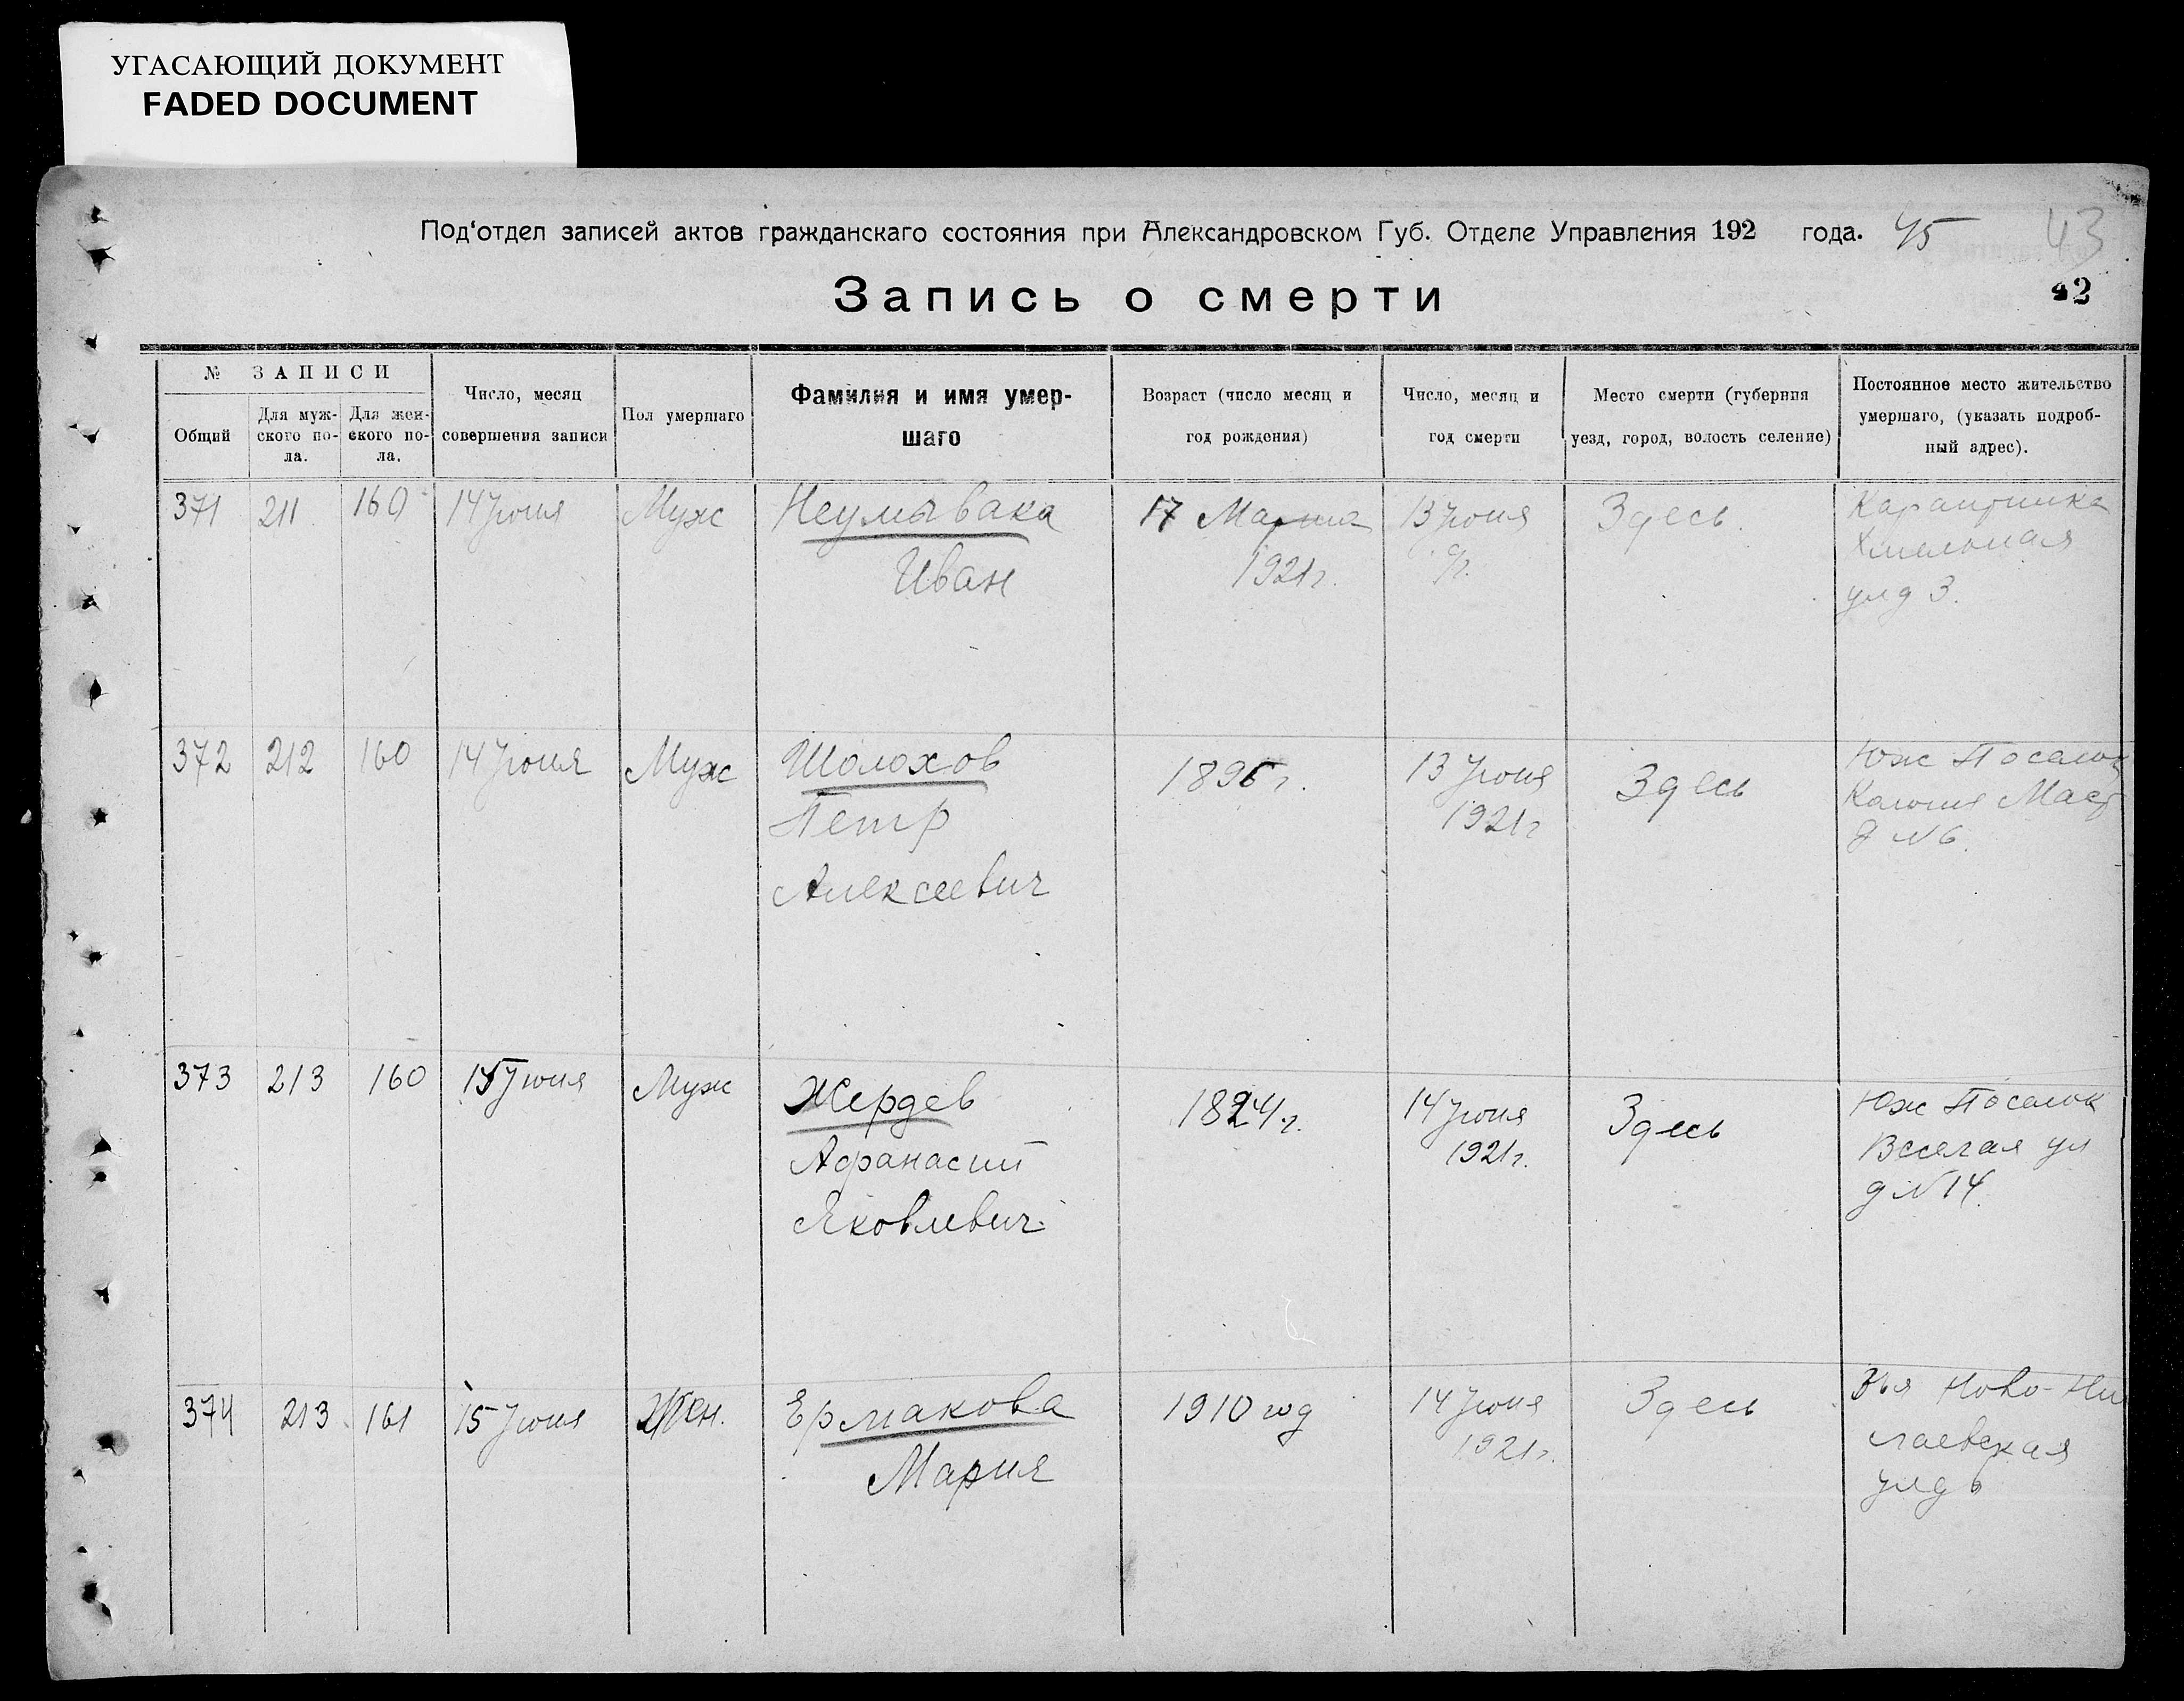 УГАСАЮЩИЙ ДОКУМЕНТ
FADED DOCUMENT
Под‘отдел записей актов гражданскаго состояния при Александровском Губ. Отделе Управления 192 года. 45 43
Запись о смерти 42
№ ЗАПИСИ
Общий
Для муж-
ского по-
ла.
Для жен-
ского по-
ла.
Число, месяц
совершения записи
Пол умершаго
Фамилия и имя умер-
шаго
Возраст (число месяц и
год рождения)
Число, месяц и
год смерти
Место смерти (губерния
уезд, город, волость селение)
Постоянное место жительство
умершаго, (указать подроб-
ный адрес).
371 211 160 14 Июня Муж
Неумывака
Иван
17 Марта
1921г.
13 Июня
с/г.
Здесь.
Карантинка
Хмельная
ул д 3.
372 212 160 14 Июня Муж
Шолохов
Петр
Алексеевич
1896г.
13 Июня
1921г
Здесь
Юж Поселок
Колония Маст
д №6.
373 213 160 15 Июня Муж
Жердев
Афанасий
Яковлевич
1824г.
14 Июня
1921г.
Здесь
Юж Поселок
Веселая ул
д №14.
374 213 161 15 Июня Жен.
Ермакова
Мария
1910 год
14 Июня
1921г.
Здесь
Ново-Ни
лаевская
ул д 6